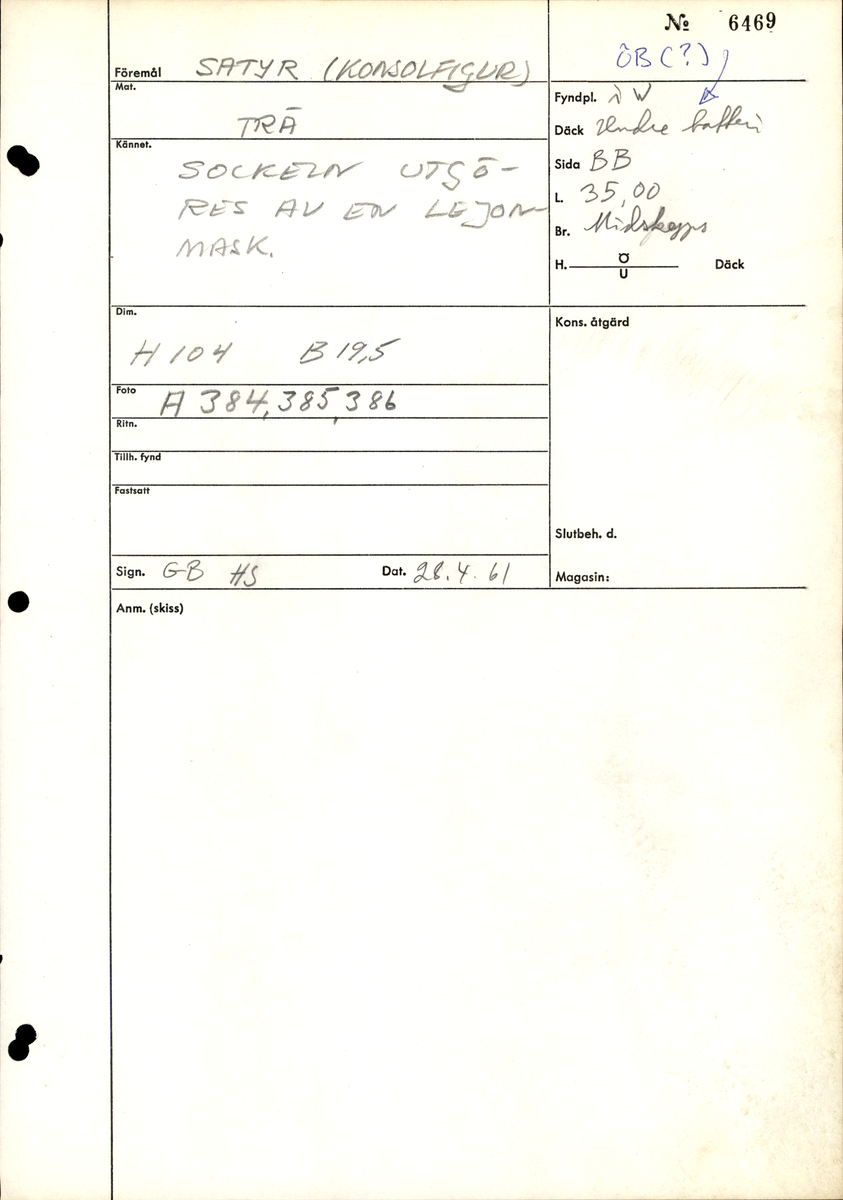 № 6469
ÖB (?)
Föremål SATYR (KONSOLFIGUR)
Mat.
TRÄ
Kännet.
SOCKELN UTGÖ-
RES AV EN LEJON-
MASK.
Fyndpl. i W
Däck Undre batteri
Sida BB
L. 35,00
Br. Midskepps
H. Ö
U
Däck
Dim.
H 104 B 19,5
Kons. åtgärd
Foto A 384, 385, 386
Ritn.
Tillh. fynd
Fastsatt
Slutbeh. d.
Sign. GB HS Dat. 28.4.61
Magasin:
Anm. (skiss)